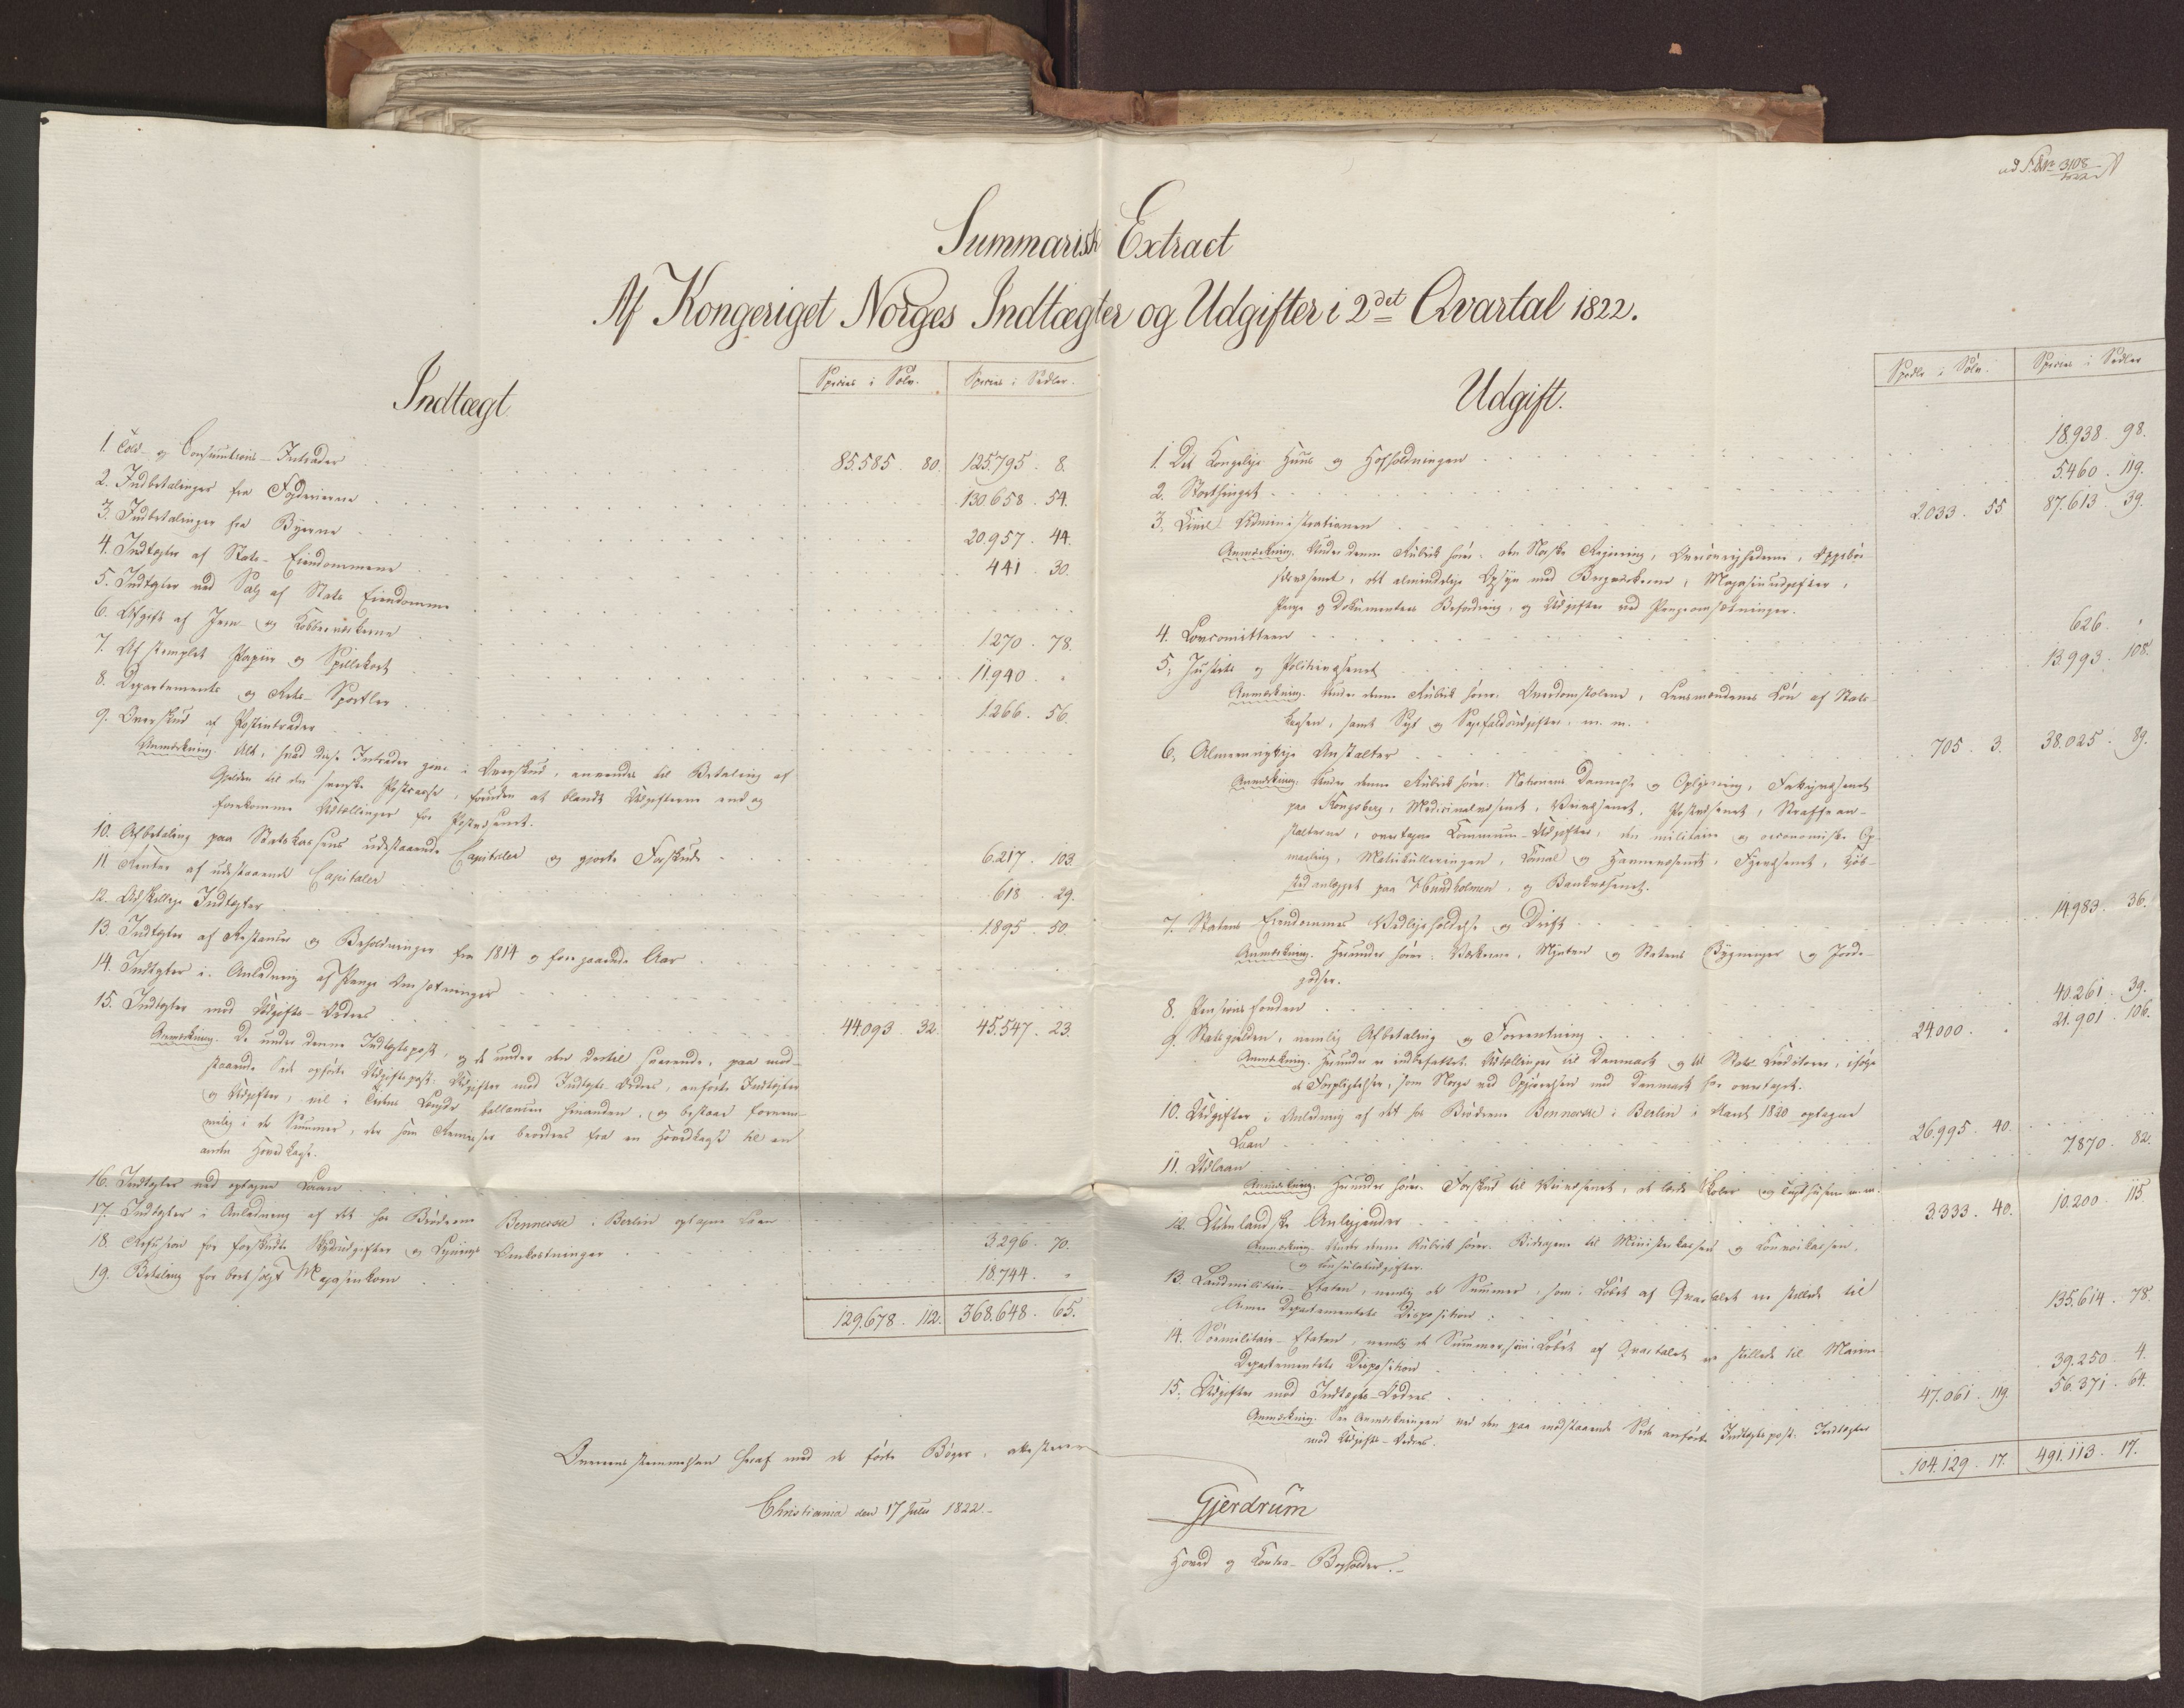 Summarisk Extract
Af Kongeriget Norges Indtægter og Udgifter i 2det Qvartal 1822.
Indtægt.
Species i Sølv. Species i Sedler.
1. Told- og Consumtions-Intrader 85.585. 80. 125.795. 8.
2. Indbetalinger fra Fogderierne 130.658. 54.
3. Indbetalinger fra Byerne 20.957. 44.
4. Indtægter af Stats-Eiendommene 441. 30.
5. Indtægter ved Salg af Stats Eiendomme
6. Afgift af Jern- og Kobberværkerne 1270. 78.
7. Af stemplet Papiir og Spillekort 11.940. "
8. Departements og Rets-Sportler 1266. 56.
9. Overskud af Postintrader
Anmærkning. Alt, hvad disse Intrader give i Overskud, anvendes til Betaling af
Gjelden til den svenske Postcasse, foruden at blandt Udgifterne endog
forekomme Udtællinger for Postvæsenet.
10. Afbetaling paa Statskassens udestaaende Capitaler og gjorte Forskude 6.217. 103.
11. Renter af udestaaende Capitaler 618. 29.
12. Adskillige Indtægter 1895. 50.
13. Indtægter af Restancer og Beholdninger fra 1814 og foregaaende Aar
14. Indtægter i Anledning af Penge Omsætninger
15. Indtægter mod Udgifts-Ordres 44.093. 32. 45.547. 23.
Anmærkning. De under denne Indtægtspost, og de under den dertil svarende, paa mod-
staaende Side opførte Udgiftspost: Udgifter mod Indtægts-Ordres, anførte Indtægter
og Udgifter, vil i Tidens Længde ballancere hinanden, og bestaae fornem-
melig i de Summer, der som Remesser beordres fra en Hovedkasse til en
anden Hovedkasse.
16. Indtægter ved optagne Laan
17. Indtægter i Anledning af det hos Brødrene Bennecke i Berlin optagne Laan
18. Refusion for forskudte Skydsudgifter og Omkostninger 3.296. 70.
19. Betaling for bortsolgt Magasinkorn 18.744. "
129.678. 112. 368.648. 65.
Overeensstemmelsen heraf med de førte Bøger, attesterer
Christiania den 17 Julii 1822.
ad 3108/1822
Udgift.
Spedlr i Sølv. Species i Sedler
1. Det Kongelige Huus og Hofholdningen 18.938. 98.
2. Storthinget 5.460. 119.
3. Civil Administrationen 2.033. 55 87.613. 39.
Anmærkning. Under denne Rubrik hører: den Norske Regjering, Overøvrighederne, Oppebør-
selsvæsenet, det almindelige Opsyn med Bergværkerne, Magasinudgifter,
Penge og Dokumenters Befordring, og Udgifter ved Pengeomsætninger.
4. Lovcomitteen 626. "
5. Justits og Politievæsenet 13.993. 108.
Anmærkning. Under denne Rubrik hører: Overdomstolene, Lensmændenes Løn af Stats-
kassen, samt Sigt og Sagefaldsudgifter, m. m.
6. Almeennyttige Anstalter 705. 3. 38.025. 89.
Anmærkning. Under denne Rubrik hører: Nationens Dannelse og Oplysning,
paa Kongsberg, Medicinalvæsenet, Veivæsenet, Postvæsenet, Straffean-
stalterne, overtagne Commun-Udgifter, den militaire og oeconomiske Op-
maaling, Matriculeringen, Canal og Havnevæsenet, Fyrvæsenet, Kjøb-
stadanlægget paa Hundholmen, og Bankvæsenet.
7. Statens Eiendommes Vedligeholdelse og Drift 14.983. 36.
Anmærkning. Herunder hører: Værkerne, Mynten og Statens Bygninger og Jorde-
godser.
8. Pensionsfonden 40.261. 39.
9. Statsgjælden, nemlig Afbetaling og Forrentning 24.000. " 21.901. 106.
Anmærkning. Herunder er indbefattet Udtællinger til Danmark og til Stats-Creditorer, ifølge
de Forpligtelser, som Norge ved Opgjørelsen med Danmark har overtaget.
10. Udgifter i Anledning af det hos Brødrene Bennecke i Berlin i Marts 1820 optagne
Laan 26.995. 40.
11. Udlaan 7.870. 82.
Anmærkning. Herunder hører: Forskud til Veivæsenet, de lærde Skoler og Tugthusene m.m.
12. Udenlandske Anliggender 3.333. 40. 10.200. 115.
Anmærkning. Under denne Rubrik hører: Bidragene til Ministerkassen og Convoikassen,
og Consulatudgifter.
13. Landmilitair-Etaten, nemlig de Summer, som i Løbet af Qvartalet ere stillede til
Armee Departementets Disposition 135.614. 78.
14. Søemilitair-Etaten, nemlig de Summer, som i Løbet af Qvartalet ere stillede til Marine-
Departementets Disposition 39.250. 4.
15. Udgifter mod Indtægts-Ordres 47.061. 119. 56.371. 64.
Anmærkning. See Anmærkningen ved den paa modstaaende Side anførte Indtægtspost: Indtægter
mod Udgifts-Ordres.
104.129. 17. 491.113. 17.
Gjerdrum
Hoved og Contra-Bogholder.